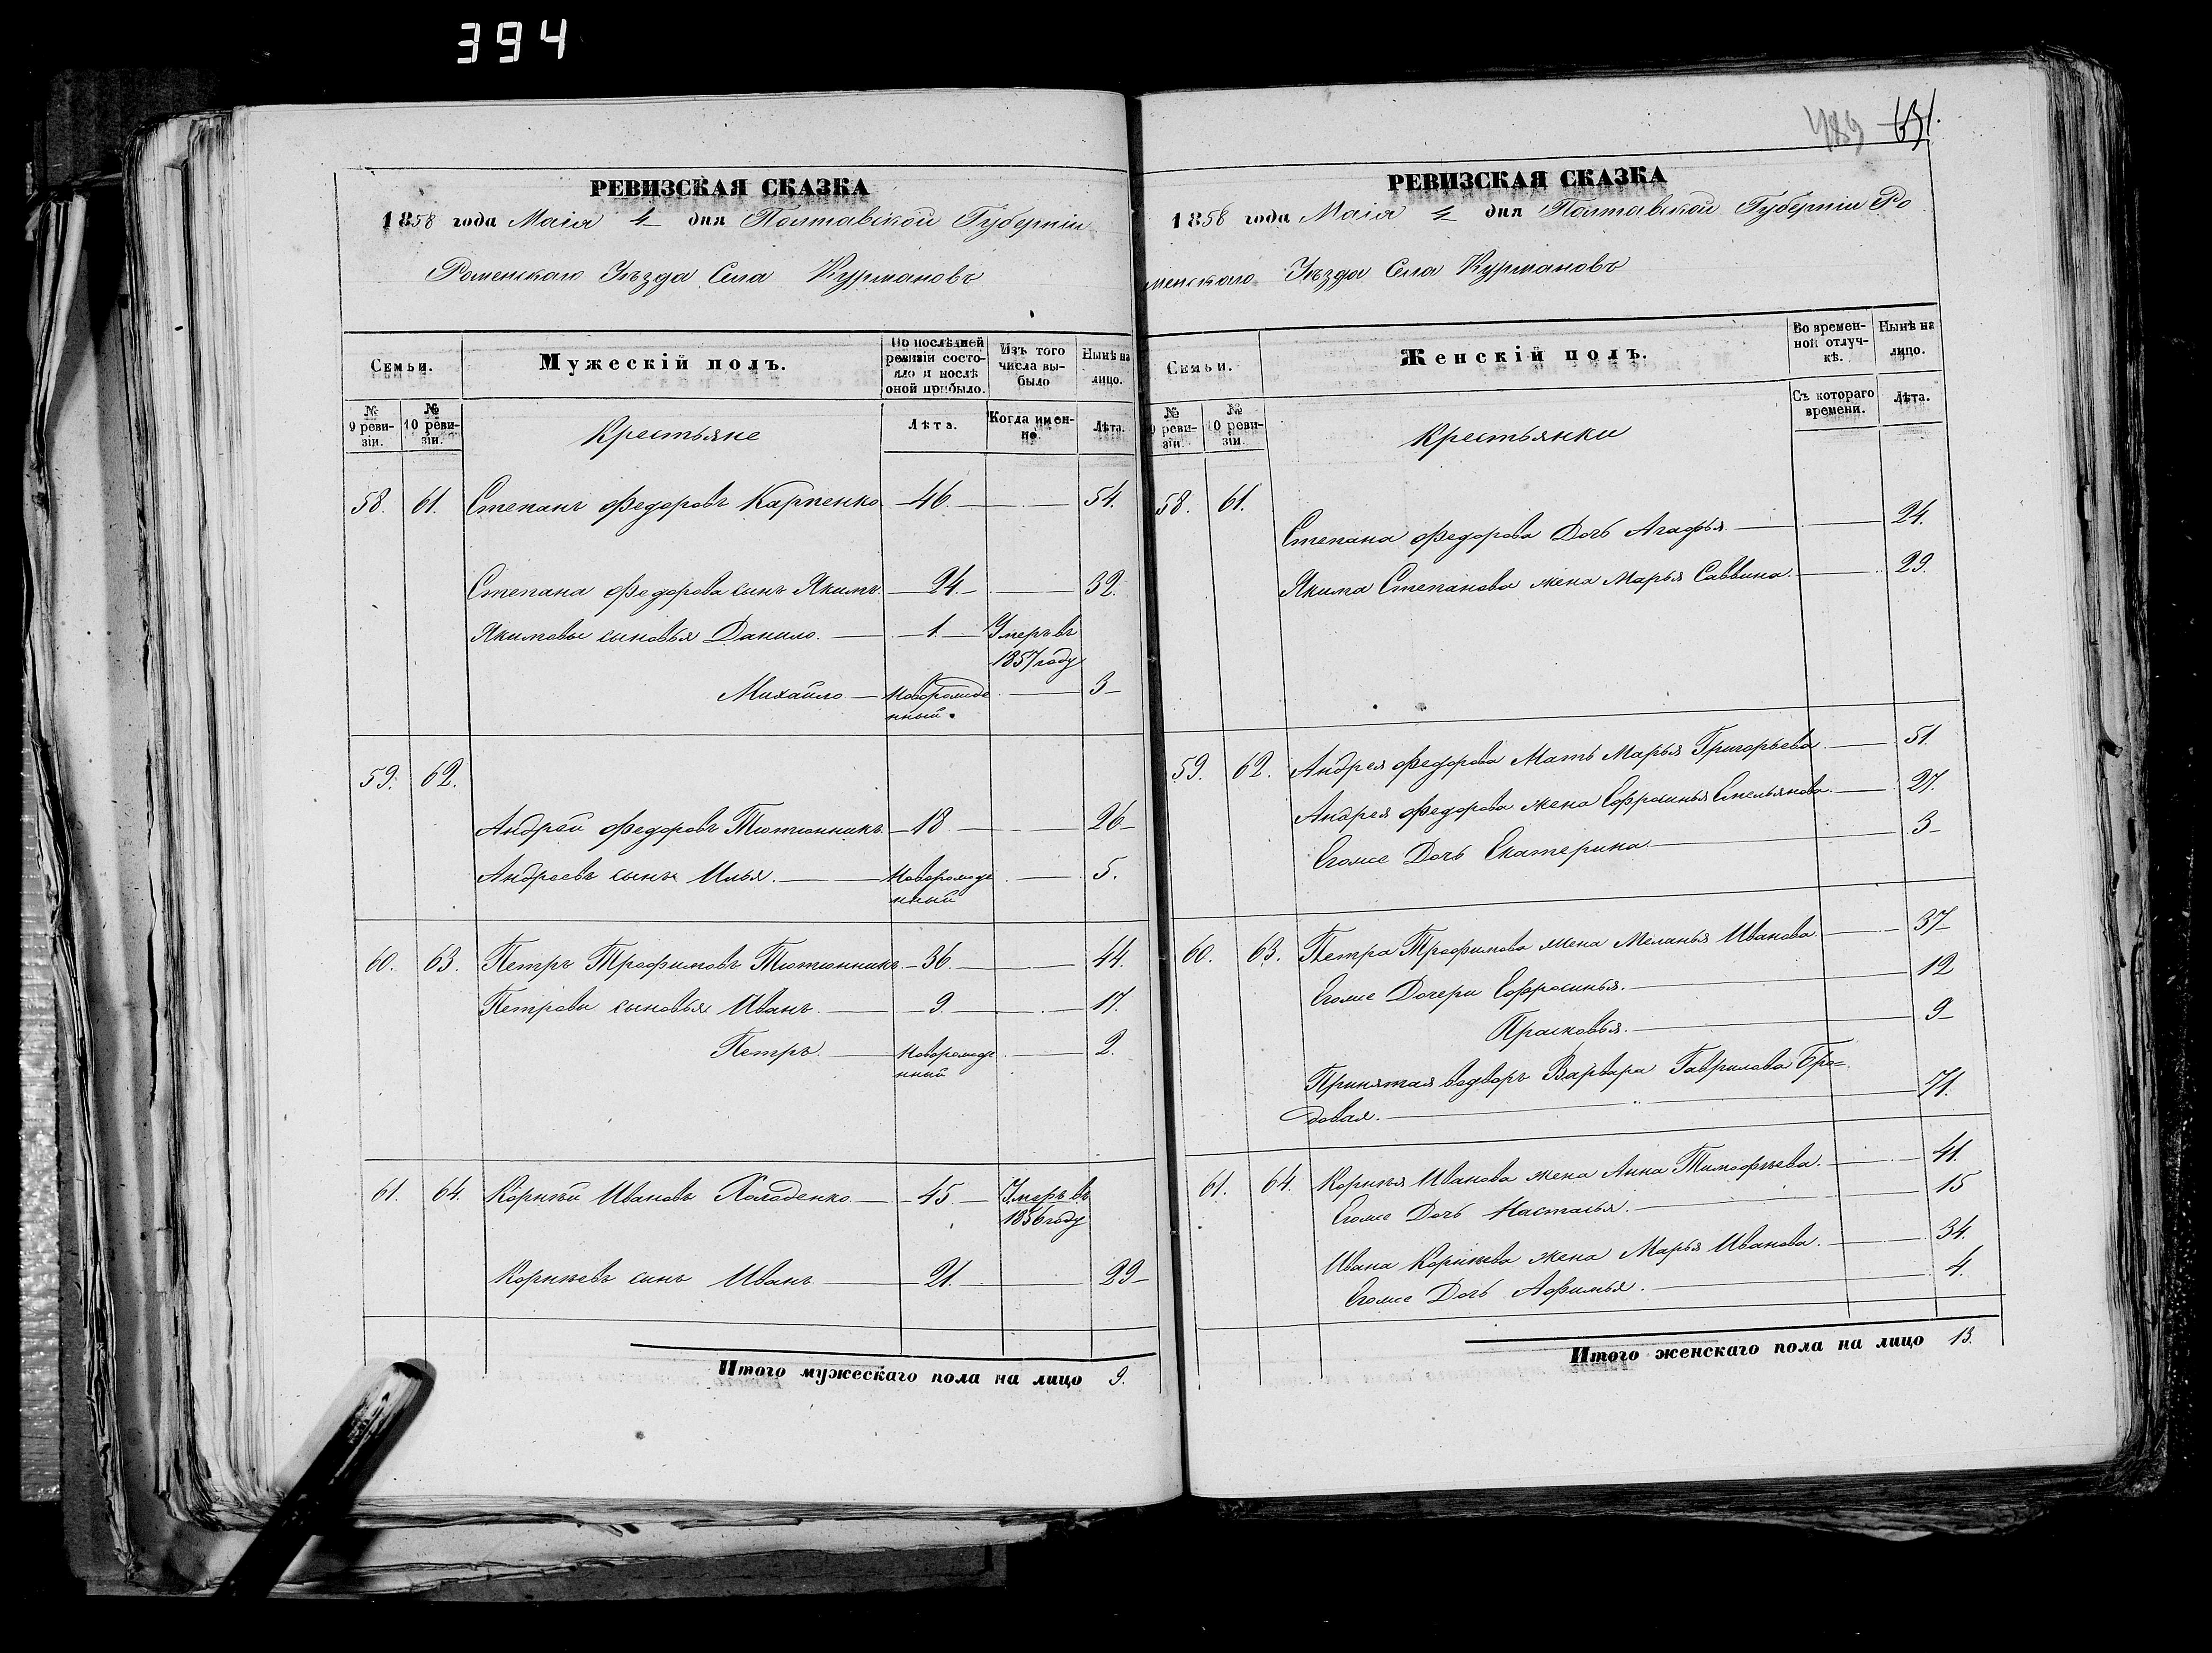 394
РЕВИЗСКАЯ СКАЗКА
1858 года Маія 4 дня Полтавской Губерніи
Роменскаго Уѣзда Села Курмановъ
Семьи.
Мужескій полъ.
По послѣдней ревизіи состояло и послѣ оной прибыло.
Изъ того числа выбыло
Нынѣ на лицо.
№ 9 ревизіи.
№ 10 ревизіи.
Крестьяне
Лѣта.
Когда именно.
Лѣта.
58. 61. Степанъ Федоровъ Карпенко 46. 54.
Степана Федорова сынъ Якимъ. 24. 32.
Якимовы сыновья Данило. 1. Умеръ въ
1857 году
Михайло новорожде 3
нный.
59. 62.
Андрей Федоровъ Тютюнникъ 18 26
Андреевъ сынъ Илья. новорожде 5.
нный
60. 63. Петръ Трофимовъ Тютюнникъ. 36. 44.
Петровы сыновья Иванъ. 9. 17.
Петръ. новорожде 2.
нный
61. 64. Корнѣй Ивановъ Холоденко 45. Умеръ въ
1856 году
Корнѣевъ сынъ Иванъ 21. 29
Итого мужескаго пола на лицо 9.
489 631.
РЕВИЗСКАЯ СКАЗКА
1858 года Маія 4 дня Полтавской Губерніи Ро
менскаго Уѣзда Села Курмановъ
Семьи.
Женскій полъ.
Во временной отлучкѣ.
Нынѣ на лицо.
№ 9 ревизіи.
№ 10 ревизіи.
Крестьянки
Съ котораго времени.
Лѣта.
58. 61.
Степана Федорова Дочь Агафья 24.
Якима Степанова жена Марья Саввина. 29.
59. 62. Андрея Федорова Мать Марья Григорьева. 51.
Андрея Федорова жена Ефросинья Емельянова. 27.
Егоже Дочь Екатерина 3
60. 63. Петра Трофимова жена Меланья Иванова. 37
Егоже Дочери Ефросинья. 12
Прасковья. 9
Принятая водворъ Варвара Гаврилова Бро=
довая. 71.
61. 64. Корнѣя Иванова жена Анна Тимофѣева. 41.
Егоже Дочь Настасья. 15
Ивана Корнѣева жена Марья Иванова. 34.
Егоже Дочь Афимья. 4.
Итого женскаго пола на лицо 13.